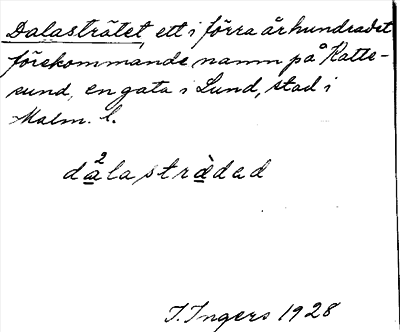 Dalasträtet, ett i förra århundradet
förekommande namn på Katte-
sund, en gata i Lund, stad i
Malm. l.
da²lasträ̀dad
I. Ingers 1928